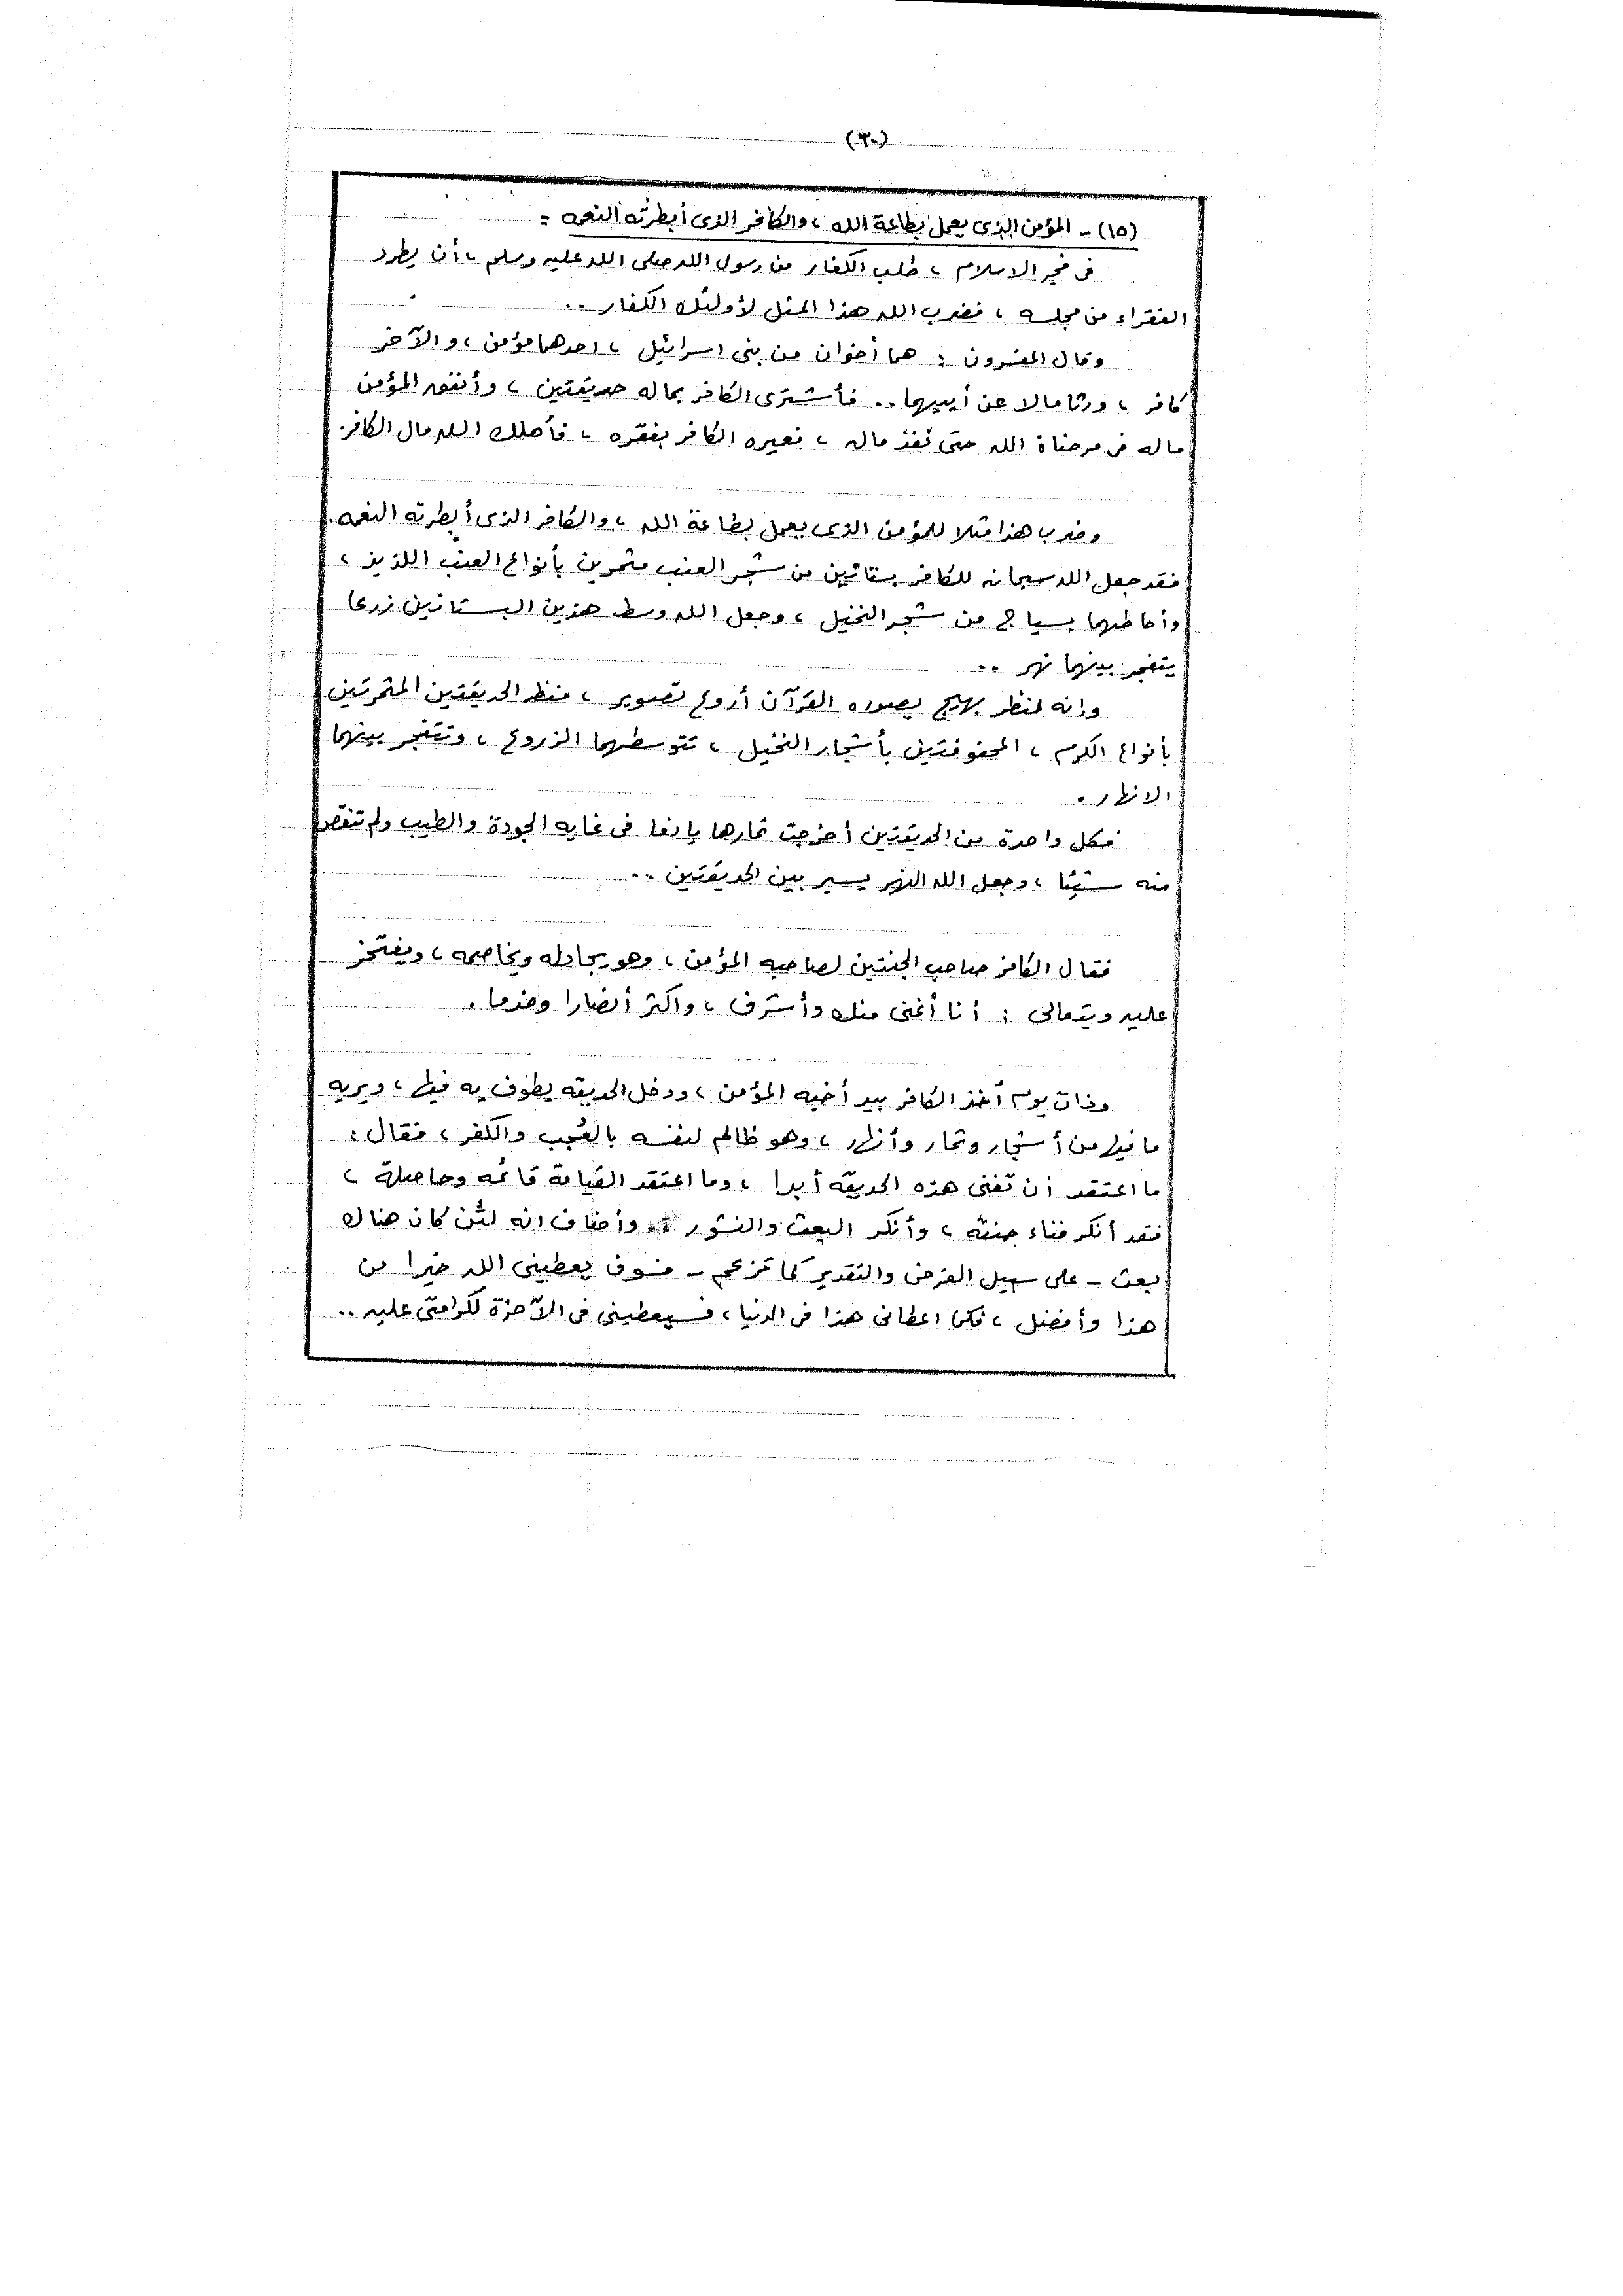 (٣٠)
(١٥) - المؤمن الذى يعمل بطاعة الله ، والكافر الذى أبطرته النعمه :
فى فجر الاسلام ، طلب الكفار من رسول الله صلى الله عليه وسلم ، أن يطرد
الفقراء من مجلسه ، فضرب الله هذا المثل لأولئك الكفار ..
وقال المفسرون : هما أخوان من بنى اسرائيل ، احدهما مؤمن ، والآخر
كافر ، ورثا مالا عن أبيهما .. فأشترى الكافر بماله حديقتين ، وأنفق المؤمن
ماله فى مرضاة الله حتى نفذ ماله ، فعيره الكافر بفقره ، فأهلك الله مال الكافر .
وضرب هذا مثلا للمؤمن الذى يعمل بطاعة الله ، والكافر الذى أبطرته النعمه .
فقد جعل الله سبحانه للكافر بستانين من شجر العنب مثمرين بأنواع العنب اللذيذ ،
وأحاطهما بسياج من شجر النخيل ، وجعل الله وسط هذين البستانين زرعا
يتفجر بينهما نهر ..
وإنه لمنظر بهيج يصوره القرآن أروع تصوير ، منظر الحديقتين المثمرتين
بأنواع الكرم ، المحفوفتين بأشجار النخيل ، تتوسطهما الزروع ، وتتفجر بينهما
الانهار .
فكل واحدة من الحديقتين أخرجت ثمارها يانعا فى غايه الجودة والطيب ولم تنقص
منه شيئا ، وجعل الله النهر يسير بين الحديقتين ..
فقال الكافر صاحب الجنتين لصاحبه المؤمن ، وهو يجادله ويخاصمه ، ويفتخر
عليه ويتعالى : أنا أغنى منك وأشرف ، واكثر أنصارا وخدما .
وذات يوم أخذ الكافر بيد أخيه المؤمن ، ودخل الحديقه يطوف به فيها ، ويريه
ما فيها من أشجار وثمار وأنهار ، وهو ظالم لنفسه بالعُجب والكفر ، فقال :
ما اعتقد أن تفنى هذه الحديقه أبدا ، وما اعتقد القيامة قائمه وحاصلة ،
فقد أنكر فناء جنته ، وأنكر البعث والنشور .. وأضاف انه لئن كان هناك
بعث - على سبيل الفرض والتقدير كما تزعم - فسوف يعطينى الله خيرا من
هذا وأفضل ، فكما اعطانى هذا فى الدنيا ، فسيعطينى فى الآخرة لكرامتى عليه ..